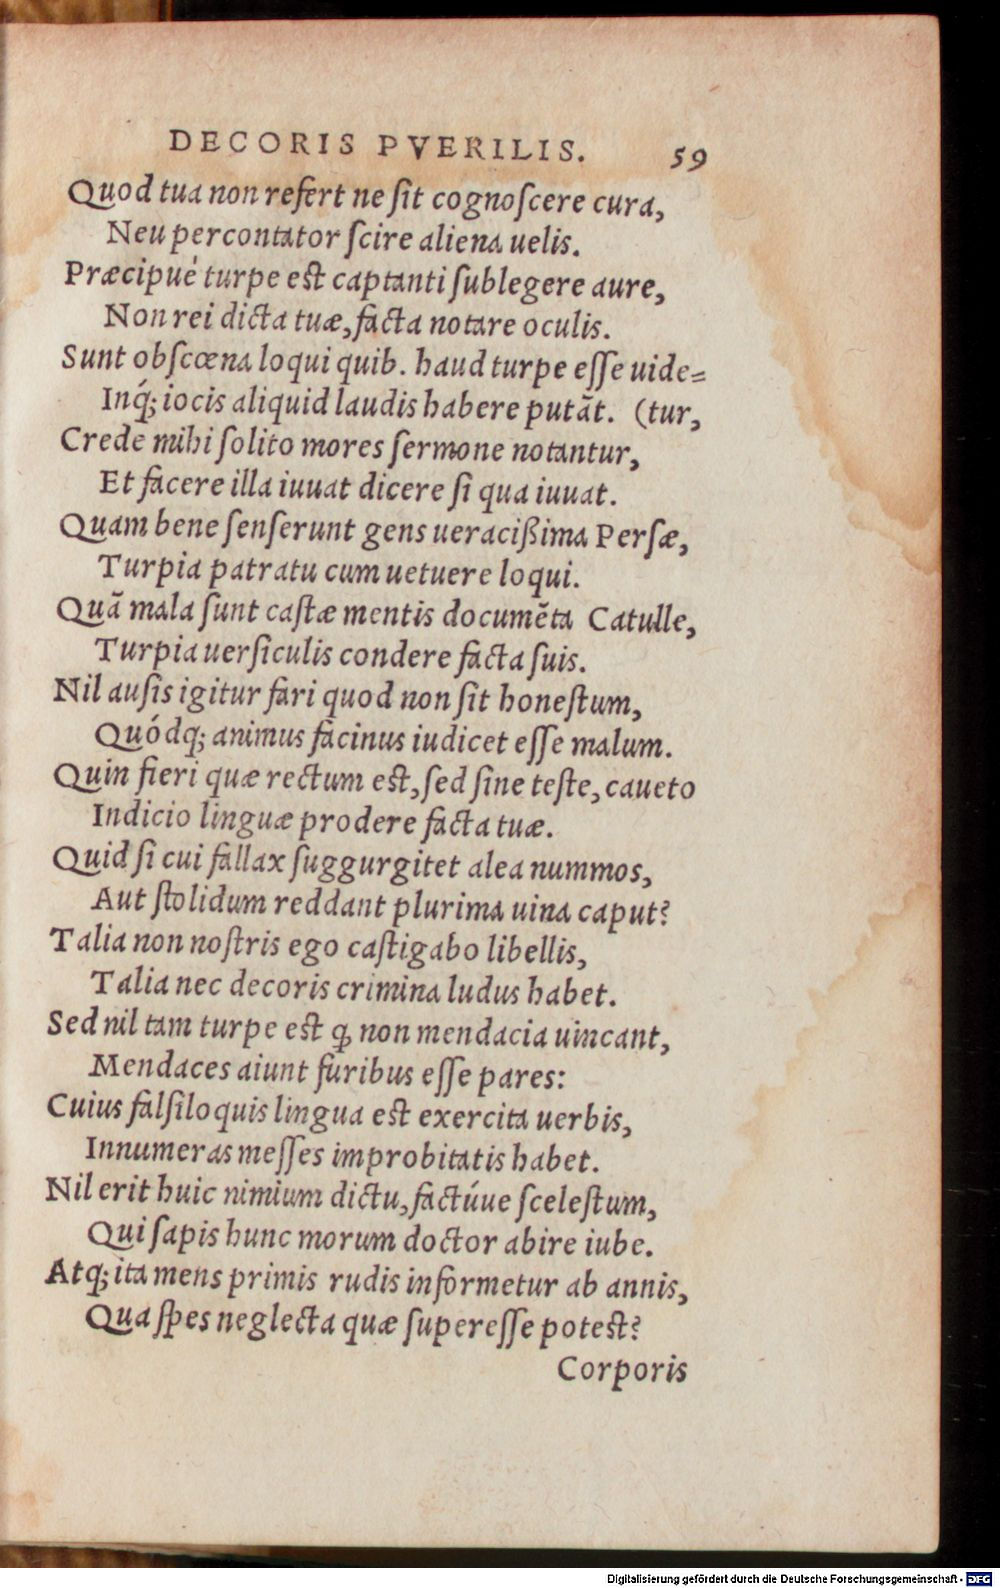 DECORIS PVERILIS. 59
Quod tua non refert ne ſit cognoſcere cura,
Neu percontator ſcire aliena uelis.
Præcipué turpe est captanti ſublegere aure,
Non rei dicta tuæ, facta notare oculis.
Sunt obſcœna loqui quib. haud turpe eſſe uide=
Inq́; iocis aliquid laudis habere putãt. (tur,
Crede mihi ſolito mores ſermone notantur,
Et facere illa iuuat dicere ſi qua iuuat.
Quam bene ſenſerunt gens ueracißima Perſæ,
Turpia patratu cum uetuere loqui.
Quã mala ſunt caſtæ mentis documẽta Catulle,
Turpia uerſiculis condere facta ſuis.
Nil auſis igitur fari quod non ſit honeſtum,
Quódq; animus facinus iudicet eſſe malum.
Quin fieri quæ rectum est, ſed ſine teſte, caueto
Indicio linguæ prodere facta tuæ.
Quid ſi cui fallax ſuggurgitet alea nummos,
Aut ſtolidum reddant plurima uina caput?
Talia non noſtris ego caſtigabo libellis,
Talia nec decoris crimina ludus habet.
Sed nil tam turpe est ꝙ non mendacia uincant,
Mendaces aiunt furibus eſſe pares:
Cuius falſiloquis lingua est exercita uerbis,
Innumeras meſſes improbitatis habet.
Nil erit huic nimium dictu, factúue ſceleſtum,
Qui ſapis hunc morum doctor abire iube.
Atq; ita mens primis rudis informetur ab annis,
Qua ſpes neglecta quæ ſupereſſe potest?
Corporis
Digitalisierung gefördert durch die Deutsche Forschungsgemeinschaft - DFG